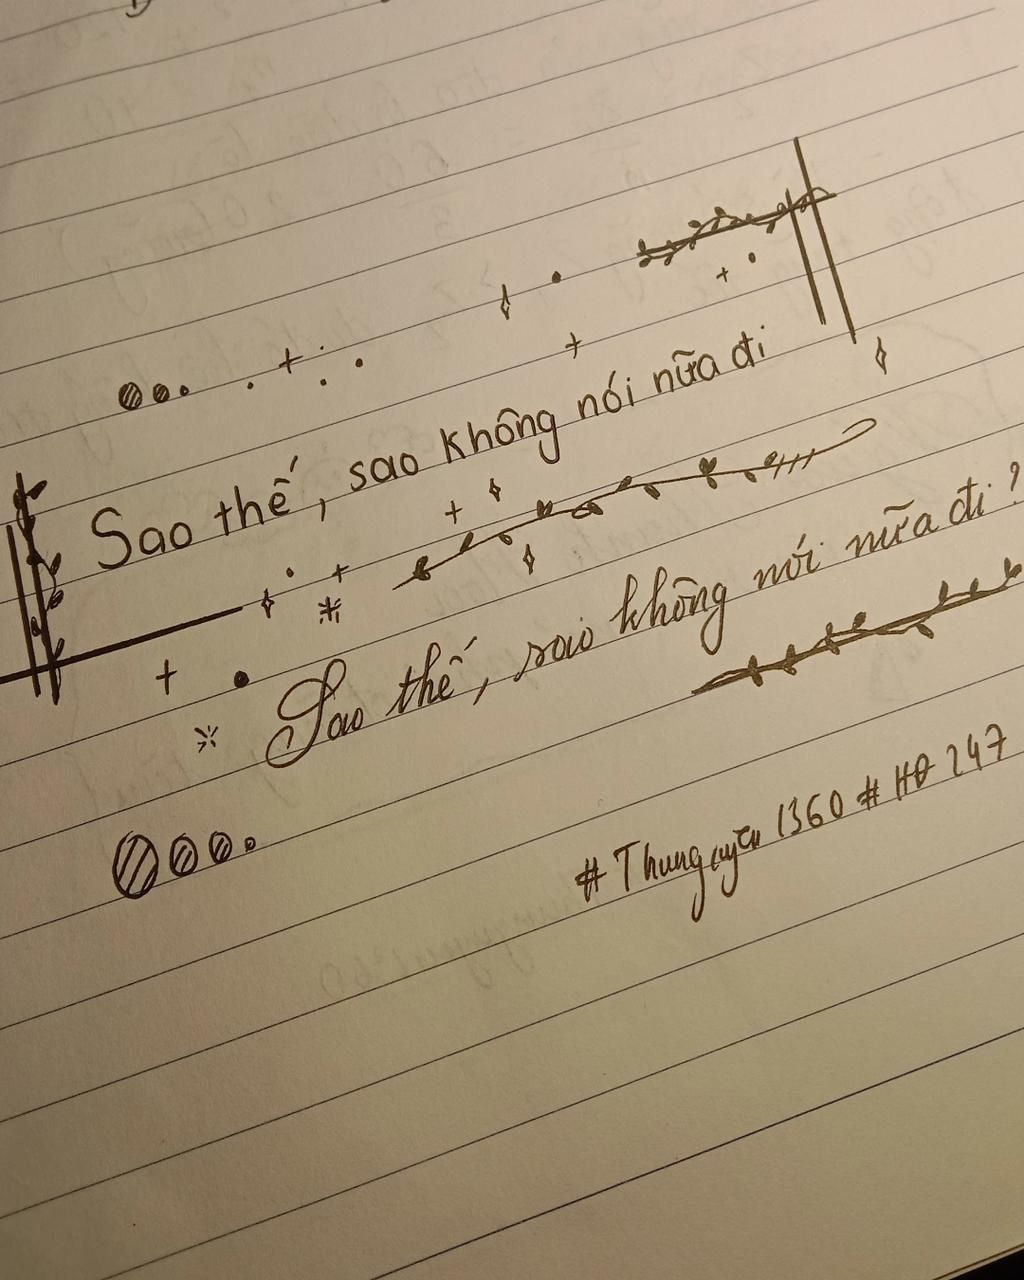 Sao thế, sao không nói nữa đi
Sao thế, sao không nói nữa đi?
# Thunguyên 1360 # HĐ 247